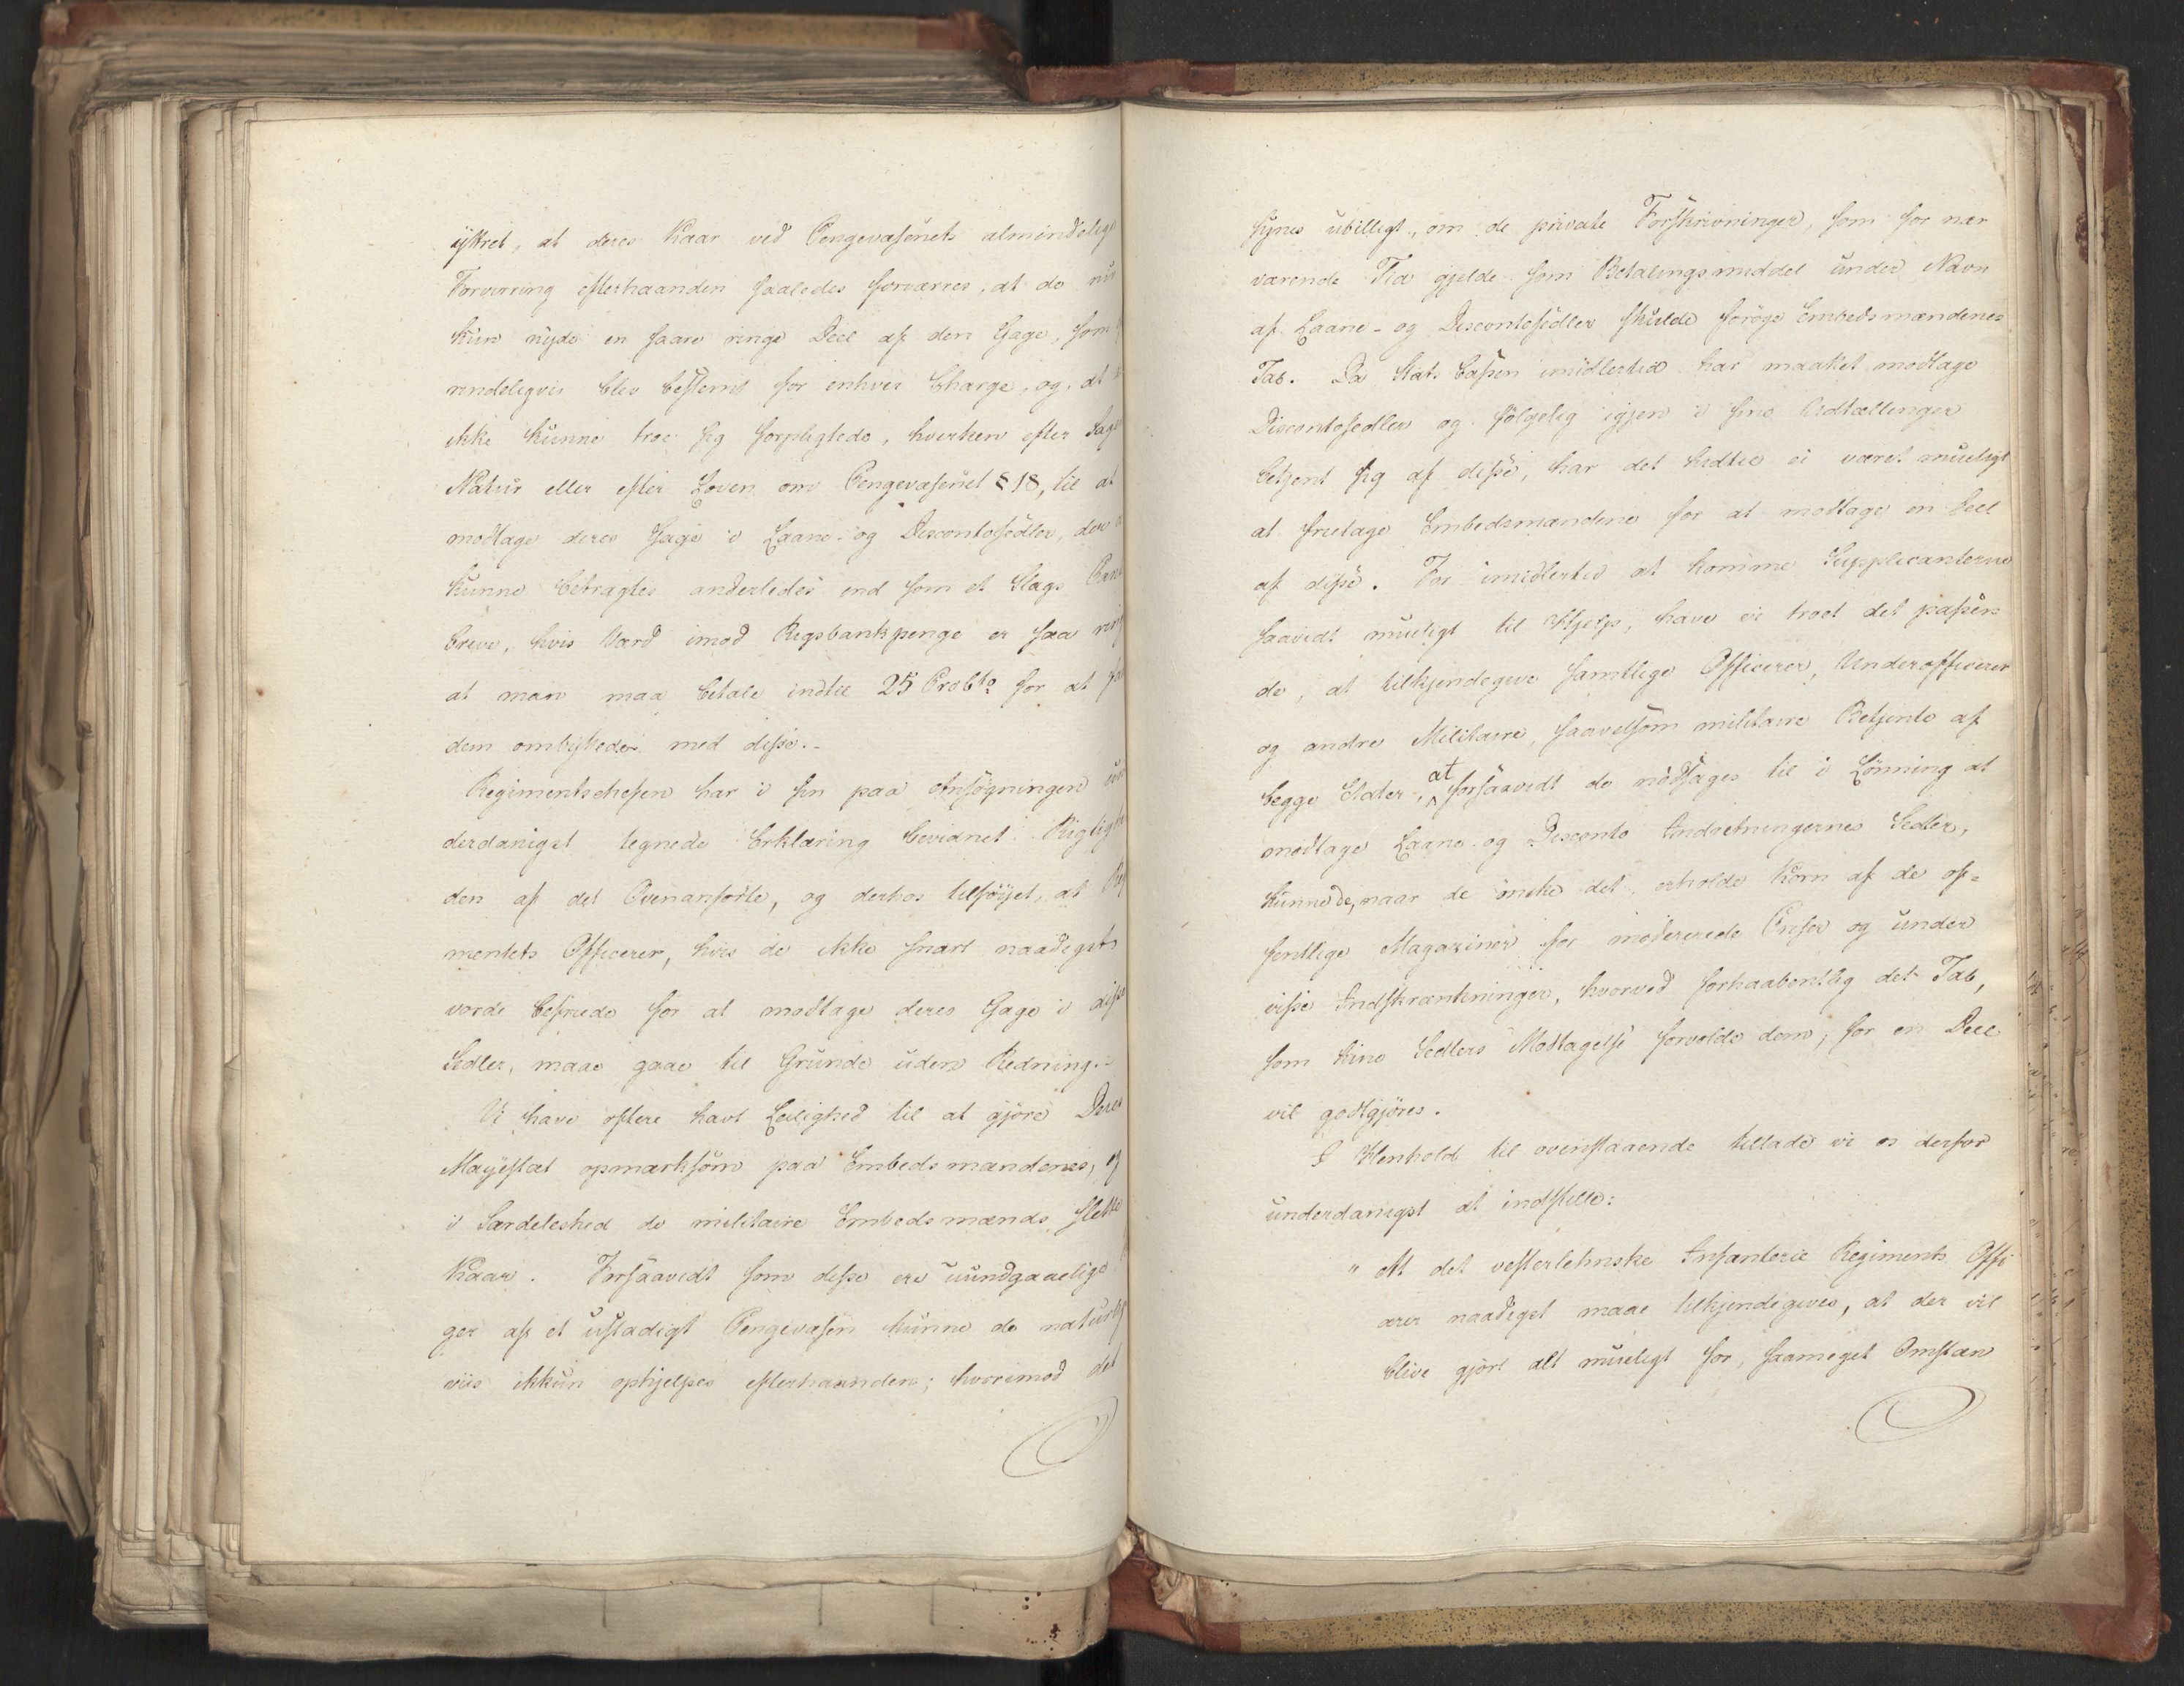 yttret, at deres Kaar ved Pengevæsenets almindelige
Forvirring efterhaanden saaledes forværres, at de nu
kun nyde en saare ringe Deel af den Gage, som
rindeligvis blev bestemt for enhver Charge, og at
ikke kunne troe sig forpligtede, hverken efter Sage
Natur eller efter Loven om Pengevæsenet § 18, til at
modtage deres Gage i Laane- og Discontosedler, der
kunne betragtes anderledes end som et Slags Pan
breve, hvis Værd imod Rigsbankpenge er saa ring
at man maa betale indtil 25 Procto for at faa
dem ombyttede med disse.-
Regimentschefen har i sin paa Ansøgningen un
derdanigst tegnede Erklæring bevidnet Rigtighe
den af det Ovenanførte, og derhos tilføiet, at Re
mentets Officerer, hvis de ikke snart naadigst
vorde befriede for at modtage deres Gage i disse
Sedler, maae gaae til Grunde uden Redning.-
Vi have oftere havt Leilighed til at gjøre Deres
Majestæt opmærksom paa Embedsmændenes, og
i Særdeleshed de militaire Embedsmænds slette
Kaar. Forsaavidt som disse ere uundgaaelige
ger af et ustadigt Pengevæsen kunne de naturlig
viis ikkun ophjelpes efterhaanden; hvorimod det
synes ubilligt, om de private Forskrivninger, som for nær
værende Tid gjelde som Betalingsmiddel under Navn
af Laane- og Discontosedler skulde forøge Embedsmændenes
Tab. Da Stats Cassen imidlertid har maattet modtage
Discontosedler og følgelig igjen i sine Udtællinger
betjent sig af disse, har det hidtil ei været mueligt
at fritage Embedsmændene for at modtage en Deel
af disse. For imidlertid at komme Supplicanterne
saavidt mueligt til Hjelp, have vi troet det passen
de, at tilkjendegive samtlige Officerer, Underofficerer
og andre Militaire, saavelsom militaire Betjente af
begge Etater, at forsaavidt de nødsages til i Lønning at
modtage Laane- og Disconto Indretningernes Sedler,
kunne de, naar de ønske det, erholde Korn af de of-
fentlige Magaziner for modererede Priser og under
visse Indskrænkninger, hvorved forhaabentlig det Tab,
som hine Sedlers Modtagelse forvolde dem, for en Deel
vil godtgjøres.
I Henhold til ovenstaaende tillade vi os derfor
underdanigst at indstille:
" At det vesterlehnske Infanterie Regiments Offi
cerer naadigst maae tilkjendegives, at der vil
blive gjort alt mueligt for, saameget Omstæn